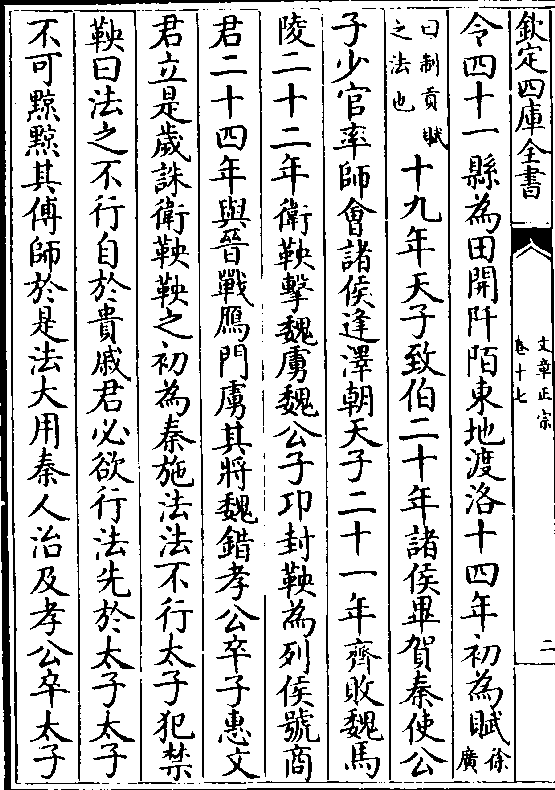 欽定四庫全書
文章正宗
卷十七
二
令四十一縣為田開阡陌東地渡洛十四年初為賦徐廣
曰制貢賦之法也十九年天子致伯二十年諸侯畢賀秦使公
子少官率師會諸侯逢澤朝天子二十一年齊敗魏馬
陵二十二年衛鞅擊魏虜魏公子卬封鞅為列侯號商
君二十四年與晉戰鴈門虜其將魏錯孝公卒子惠文
君立是歲誅衛鞅鞅之初為秦施法法不行太子犯禁
鞅曰法之不行自於貴戚君必欲行法先於太子太子
不可黥黥其傅師於是法大用秦人治及孝公卒太子